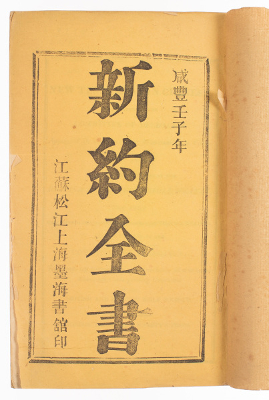 咸豐壬子年
新約全書
江蘇松江上海墨海書舘印